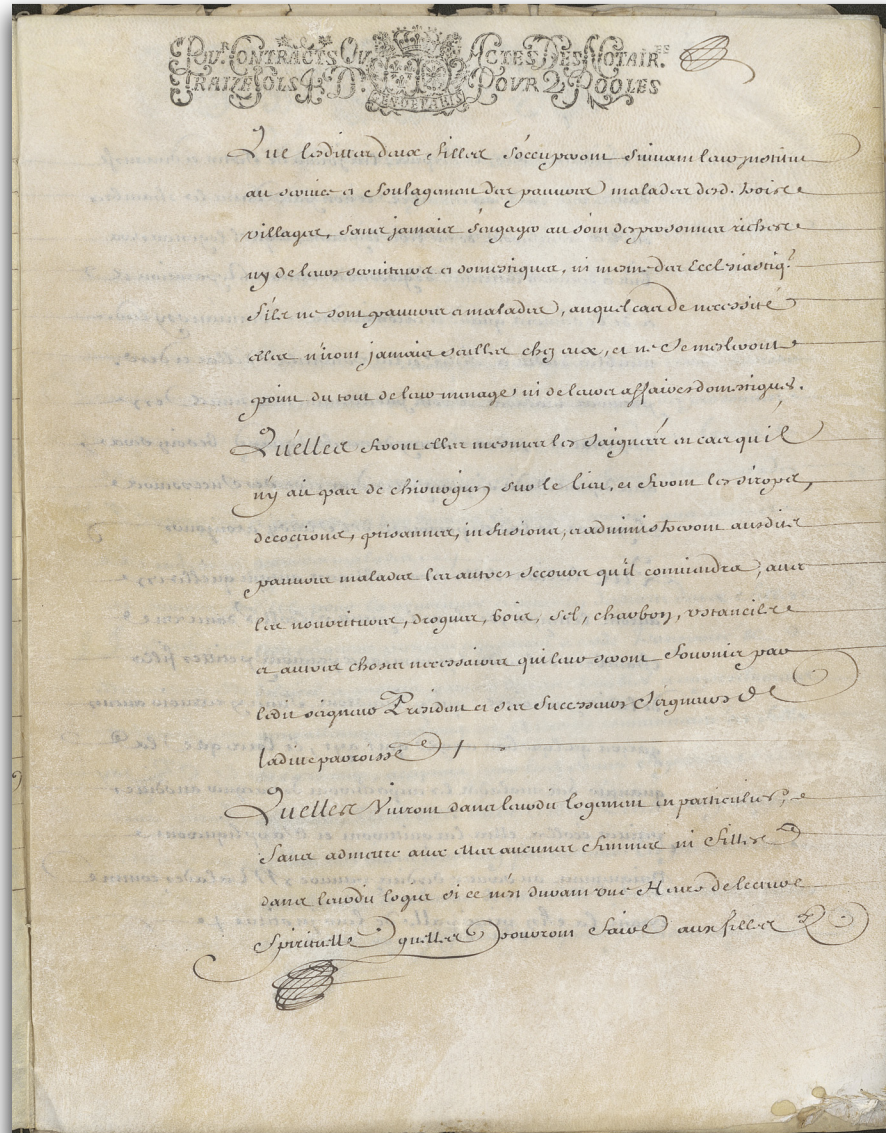 POUR CONTRACTS OU ACTES DES NOTAIRES
TRAIZE SOLS 4 D. POUR 2 ROOLES
GEN DE PARIS
Que lesdittes deux filles s'occuperont suivant leur institut
au service et soulagement des pauvres malades desd. trois
villages, sans jamais s'engager au soin des personnes riches
ny de leurs serviteurs et domestiques, ni mesme des Ecclesiastiq.s
s'ils ne sont pauvres et malades, auquel cas de necessité
elles n'iront jamais veiller chez eux, et ne se mesleront
point du tout de leur menage ni de leurs affaires domestiques.
Qu'elles feront elles mesmes les saignées en cas qu'il
n'y ait pas de chirurgien sur le lieu, et feront les sirops,
decoctions, ptisannes, infusions, et administreront ausdits
pauvres malades les autres secours qu'il conviendra, avec
les nourritures, drogues, bois, sel, charbon, ustanciles
et autres choses necessaires qui leur seront fournies par
ledit seigneur President et ses successeurs seigneurs de
ladite parroisse
Qu'elles vivront dans leurdit logement en particulier,
sans admettre avec elles aucunes femmes ni filles
dans leurdit logis si ce n'est durant une Heure de lecture
spirituelle qu'elles pourront faire aux filles